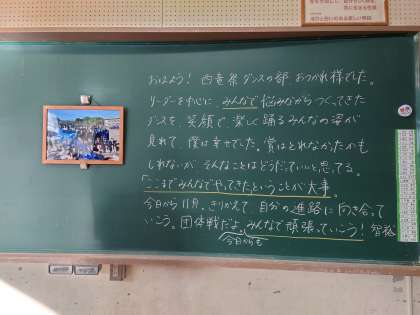 おはよう! 西竜祭ダンスの部、おつかれ様でした。
リーダーを中心に、みんなで悩みながらつくってきた
ダンスを、笑顔で、楽しく踊るみんなの姿が
見れて、僕は幸せでした。賞はとれなかったかも
しれないが、そんなことはどうだっていいと思ってる。
「ここまでみんなでやってきたということが大事。
今日から11月。きりかえて、自分の進路に向き合って
いこう。団体戦だよ。みんなで頑張っていこう! 智裕
今日からも